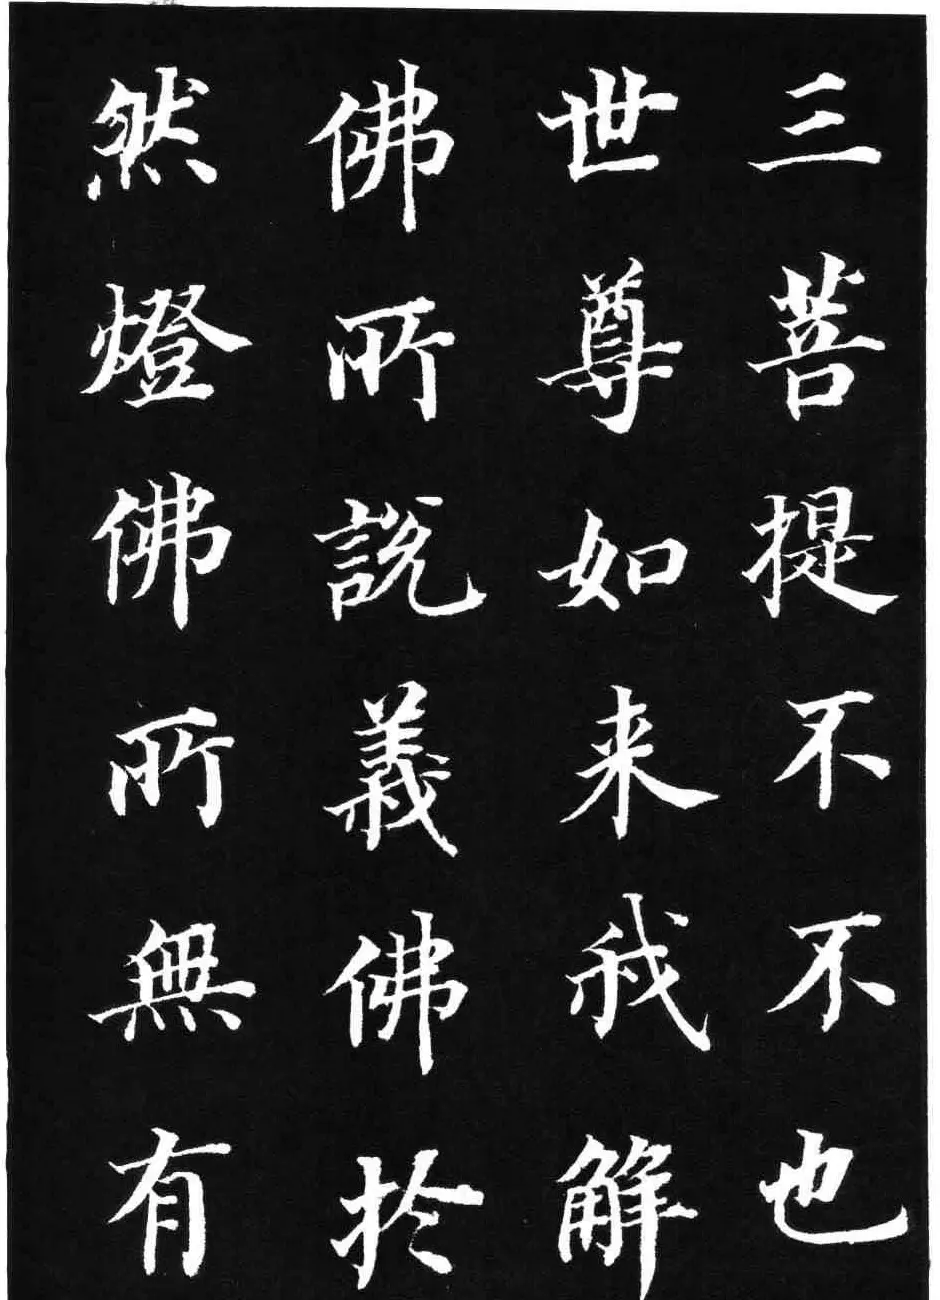 三菩提不不也
世尊如来我解
佛所說義佛於
然燈佛所無有